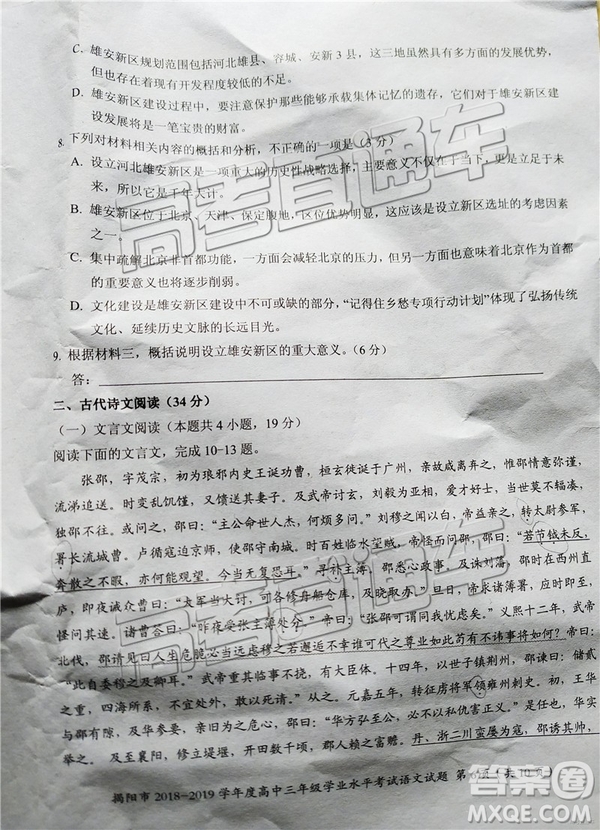 C. 雄安新区规划范围包括河北雄县、容城、安新3县，这三地虽然具有多方面的发展优势，
但也存在现有开发程度较低的不足。
D. 雄安新区建设过程中，要注意保护那些能够承载集体记忆的遗存，它们对雄安新区建
设发展将是一笔宝贵的财富。
8. 下列对材料相关内容的概括和分析，不正确的一项是（3分）
A. 设立河北雄安新区是一项重大的历史性战略选择，主要意义在于疏解北京非首都功
能，是千年大计。
B. 雄安新区位于北京、天津、保定腹地，区位优势明显，这应该是设立新区选址的考虑因素
之一。
C. 集中疏解北京非首都功能，一方面会减缓北京的压力，但另一方面也意味着北京作为首都
的重要意义也将逐步削弱。
D. 文化建设是雄安新区建设中不可或缺的部分，“记得住乡愁专项行动计划”体现了弘扬传统
文化、延续历史文脉的长远目光。
9. 根据材料三，概括说明设立雄安新区的重大意义。（6分）
答：
二、古代诗文阅读（34分）
（一）文言文阅读（本题共4小题，19分）
阅读下面的文言文，完成10-13题。
张邵，字茂宗，初为琅邪内史王诞功曹，桓玄徙诞于广州，亲故咸离弃之，惟邵情意弥谨，
流涕追送。时变乱饥馑，又馈送其妻子。及武帝讨玄，刘毅为亚相，爱才好士，当世莫不辐凑，
独邵不往。或问之，邵曰：“主公命世人杰，何烦多问。”刘穆之闻以白，帝益亲之，转太尉参军，
署长流贼曹。卢循寇迫京师，使邵守南城。时百姓临水望贼，帝怪而问邵，邵曰：“若节钺未反，
奔散之不暇，亦何能观望。今当无复恐耳。”寻补主簿。邵悉心政事，及诛刘藩，邵时在西州直
庐，即夜诫众曹曰：“大军当大讨，可各修舟船仓库，及晓取办。”旦日，帝求诸簿署，应时即至，
怪问其速。诸曹答曰：“昨夜受张主簿处分。”帝曰：“张邵可谓同我忧虑矣。”义熙十二年，武帝
北伐，邵请见曰人生危脆必当远虑穆之若邂逅不幸谁可代之尊业如此苟有不讳事将如何？帝曰：
“此自委穆之及卿耳。”武帝重其临事不挠，有大臣体。十四年，以世子镇荆州，邵谏曰：“储贰
之重，四海所系，不宜处外，敢以死请。”世子竟不行。文帝为中郎将……领雍州刺史。初，王华
与邵有隙，及华参要，亲旧为之危心，邵曰：“华方弘至公，必不以私仇害正义。”元嘉五年，转征虏将军，
及至襄阳，修立堤堰，开田数千顷，郡人赖之富赡。丹、浙二川蛮屡为寇，邵诱其帅，
揭阳市 2018-2019 学年度高中三年级学业水平考试语文试题 第 页（共10页）
高考直通车
高考直通车
答案圈
MXQE.COM